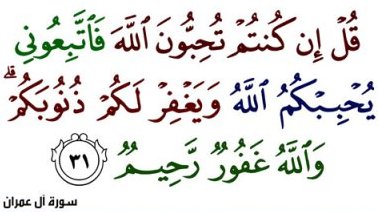 قُلْ إِن كُنتُمْ تُحِبُّونَ ٱللَّهَ فَٱتَّبِعُونِي
يُحْبِبْكُمُ ٱللَّهُ وَيَغْفِرْ لَكُمْ ذُنُوبَكُمْ ۗ
وَٱللَّهُ غَفُورٌ رَّحِيمٌ ٣١
سورة آل عمران